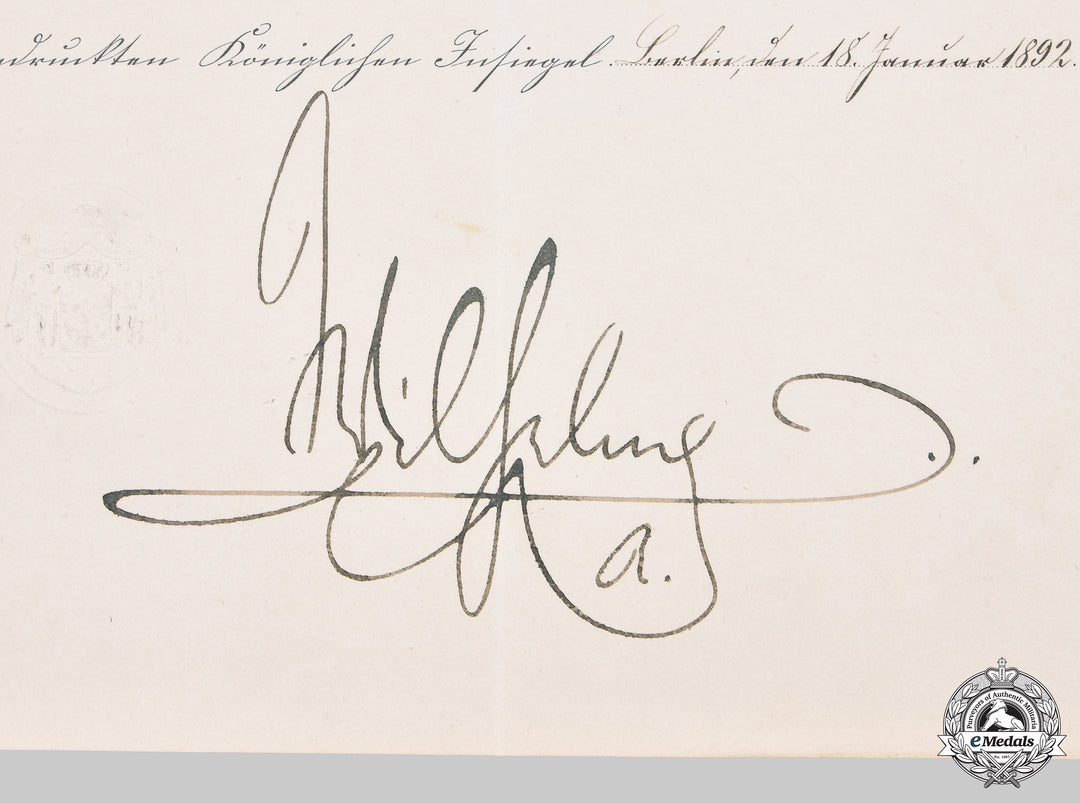 druckten Königlichen Insiegel. Berlin, den 18. Januar 1892.
Wilhelm
R.
Purveyors of Authentic Militaria
eMedals